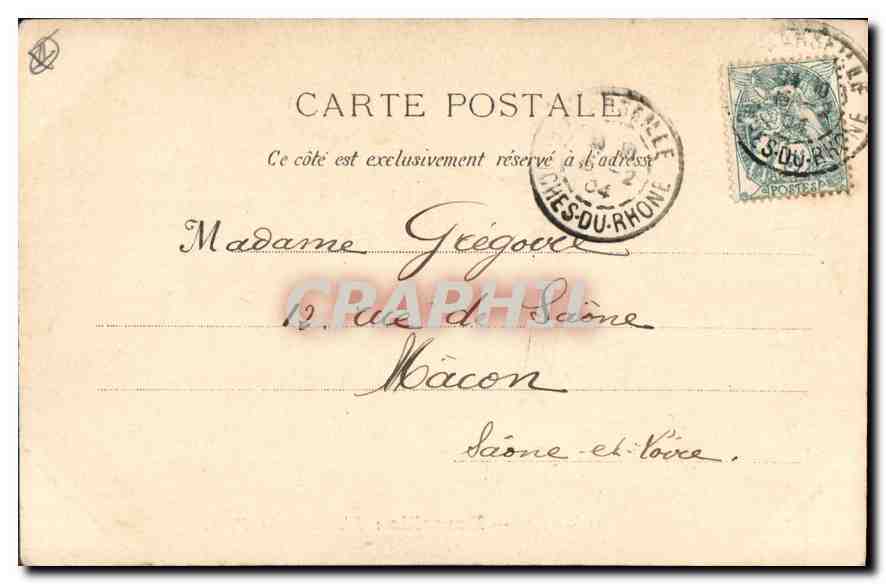 CARTE POSTALE
Ce côté est exclusivement réservé à l'adresse
MARSEILLE
04
BOUCHES-DU-RHONE
POSTES
Madame Grégoire
12, rue de Saône
Mâcon
Saône-et-Loire.
CPAPHIL